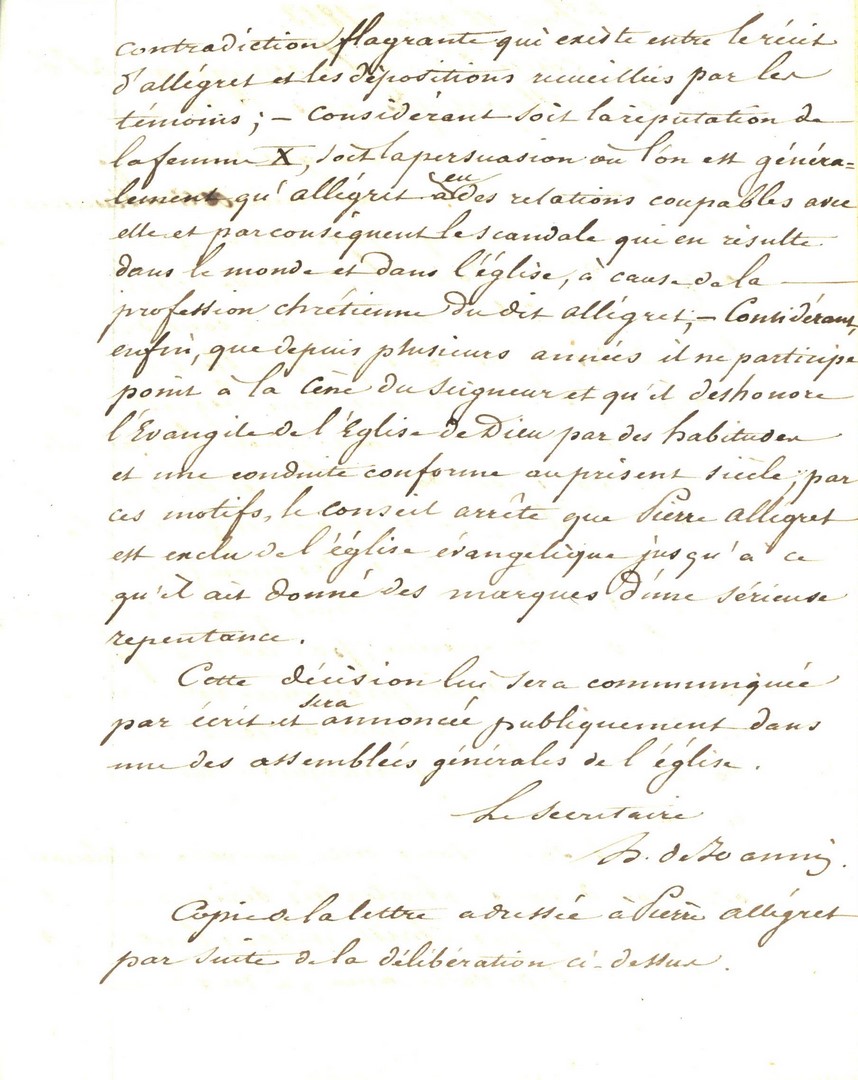 contradiction flagrante qui existe entre le récit
d'allégret et les dépositions recueillies par les
témoins ; — Considérant soit la réputation de
la femme X, soit la persuasion où l'on est généra=
lement qu'allégret a eu des relations coupables avec
elle et par conséquent le scandale qui en résulte
dans le monde et dans l'église, à cause de la —
profession chrétienne du dit allégret ; — Considérant,
enfin, que depuis plusieurs années il ne participe
point à la Cène du Seigneur et qu'il deshonore
l'Evangile de l'Eglise de Dieu par des habitudes
et une conduite conforme au présent siècle, par
ces motifs, le conseil arrête que Pierre allégret
est exclu de l'église évangelique jusqu'à ce
qu'il ait donné des marques d'une sérieuse
repentance.
Cette décision lui sera communiquée
par écrit et sera annoncée publiquement dans
une des assemblées générales de l'église.
Le secrétaire
de Joannis.
Copie de la lettre adressée à Pierre allégret
par suite de la délibération ci-dessus.